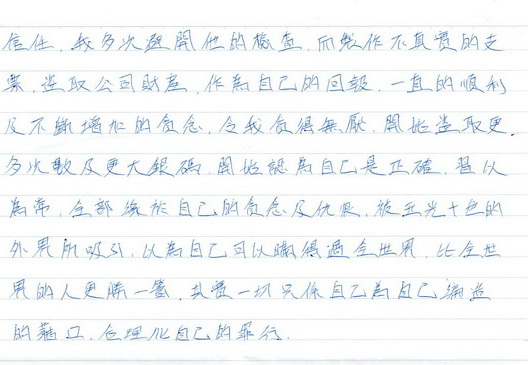 信任，我多次避開他的檢查，而製作不真實的支
票，盜取公司財產，作為自己的回報，一直的順利
及不斷增加的貪念，令我貪得無厭，開始盜取更
多次數及更大銀碼，開始認為自己是正確，習以
為常，全部緣於自己的貪念及仇恨，被五光十色的
外界所吸引，以為自己可以瞞得過全世界，比全世
界的人更勝一籌，其實一切只係自己為自己編造
的藉口，合理化自己的罪行。